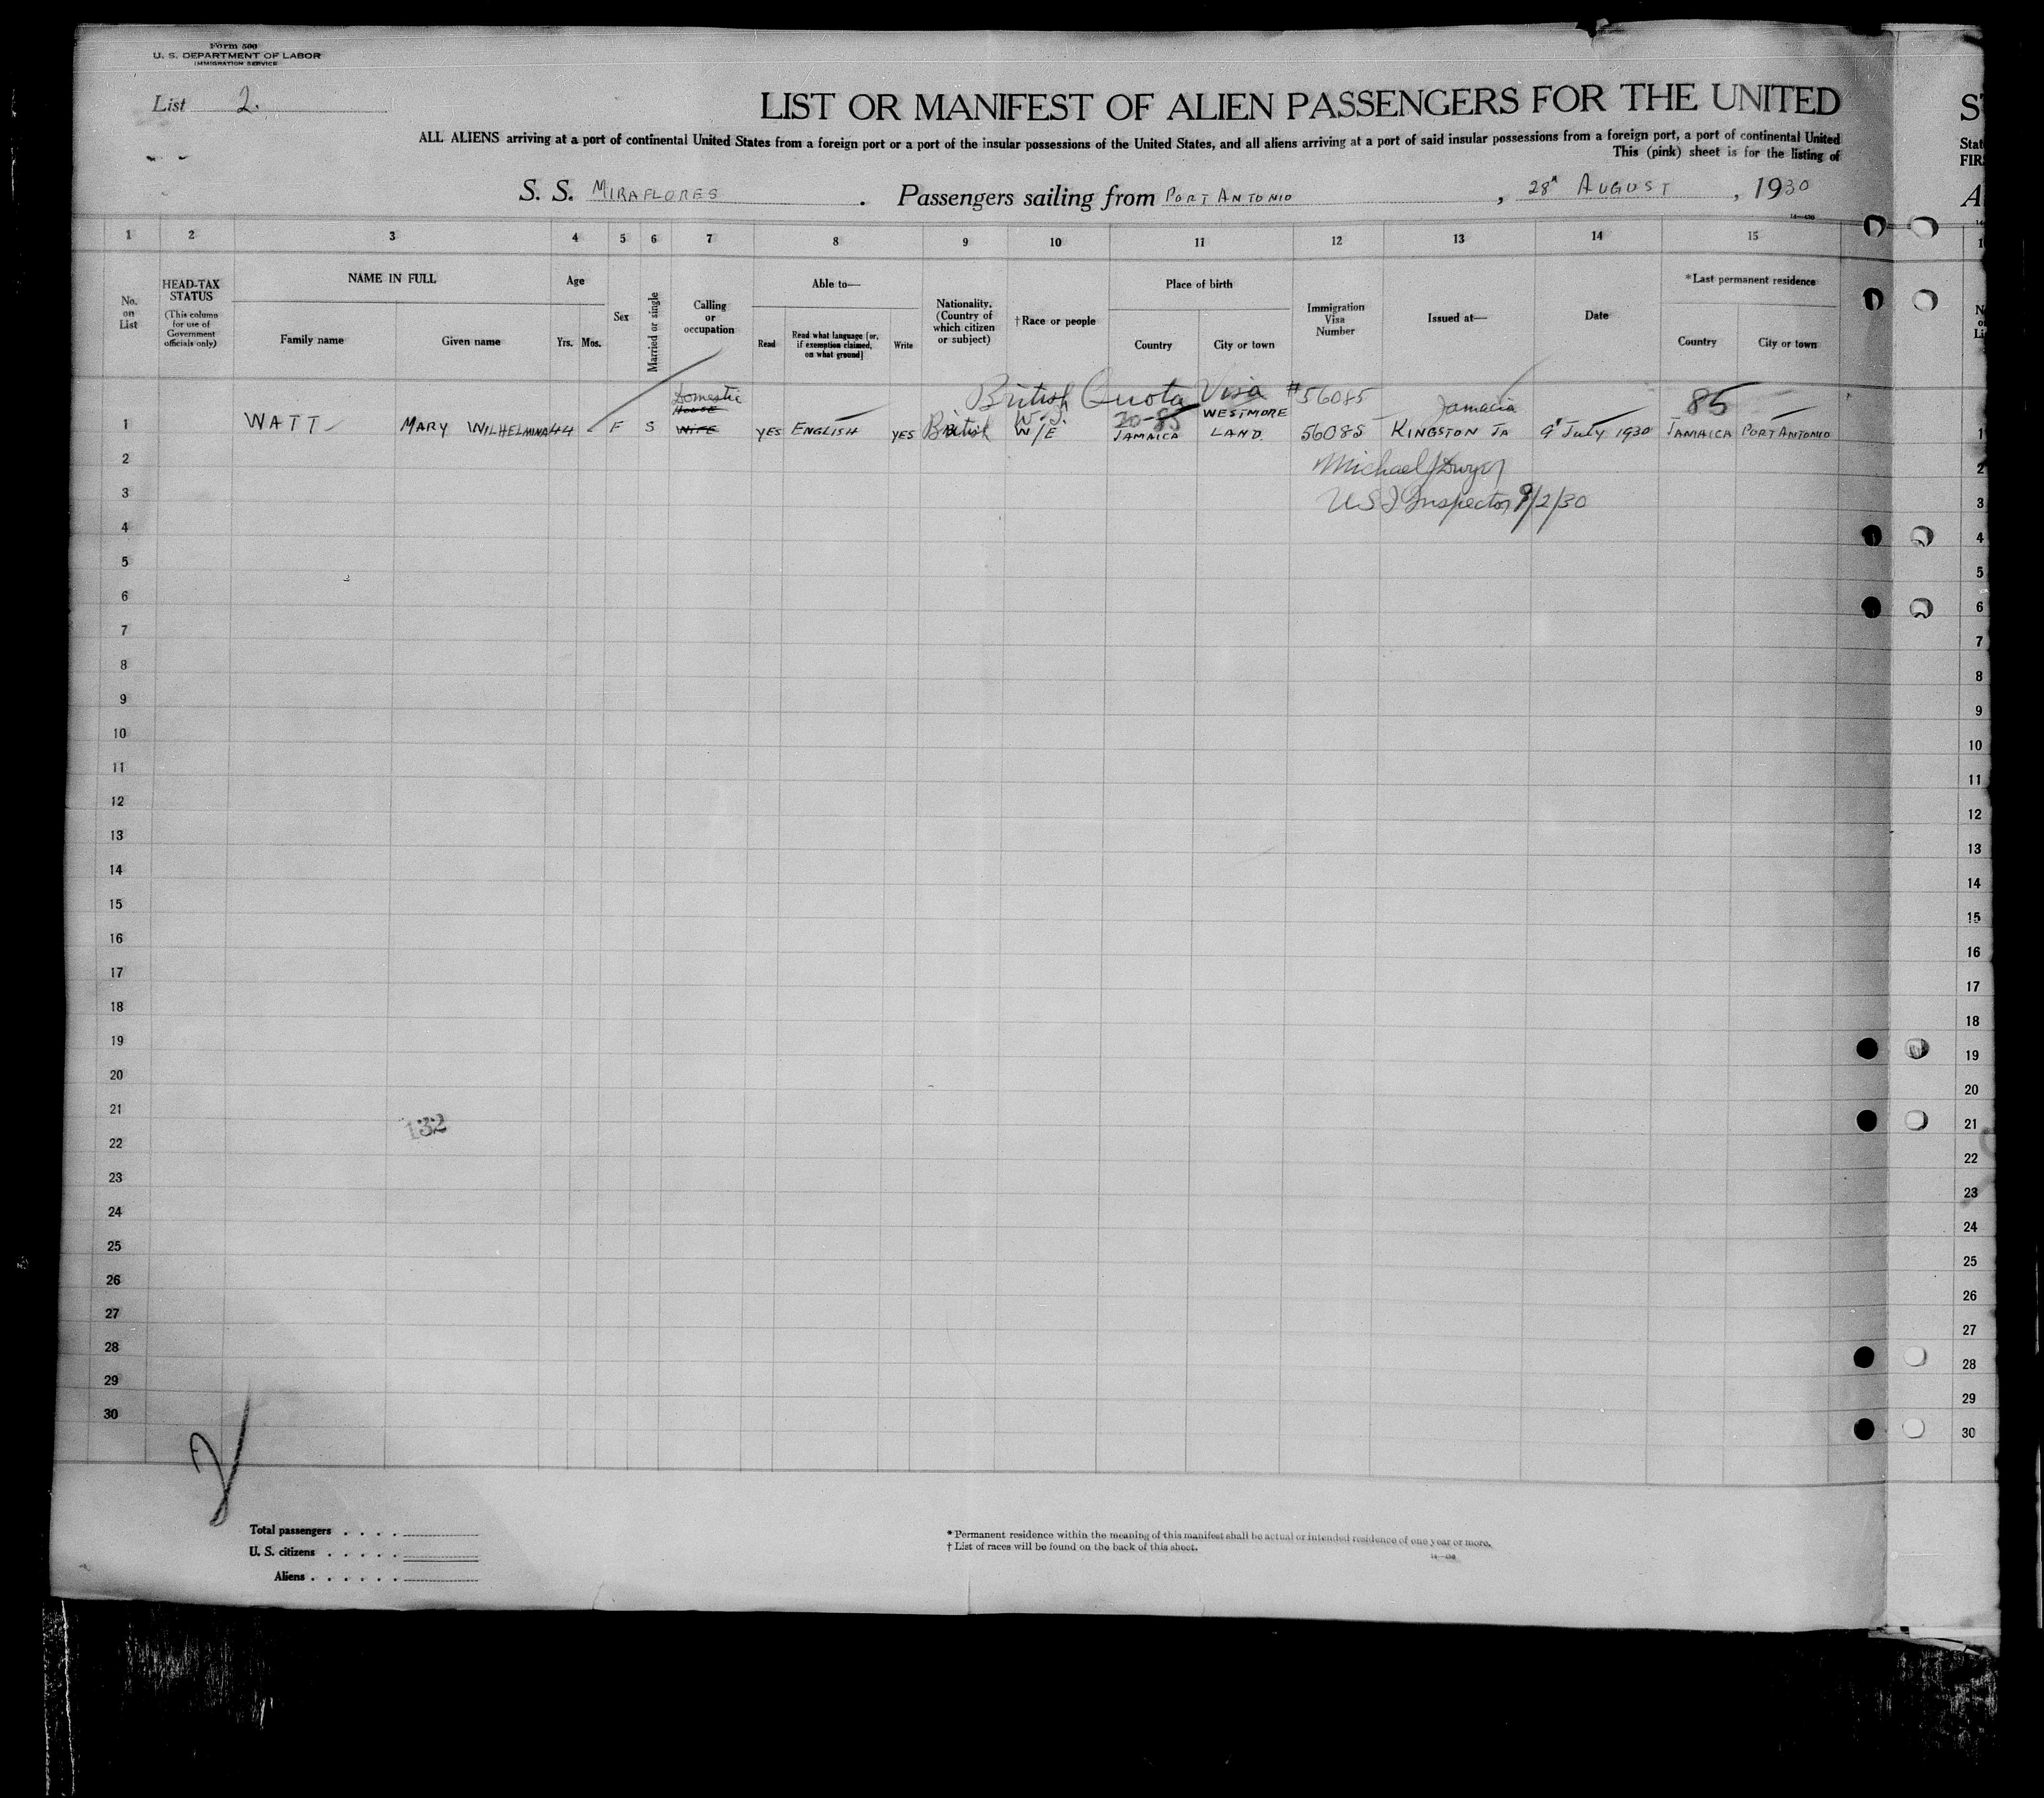 Form 500
U. S. DEPARTMENT OF LABOR
IMMIGRATION SERVICE
List 2.
LIST OR MANIFEST OF ALIEN PASSENGERS FOR THE UNITED
ALL ALIENS arriving at a port of continental United States from a foreign port or a port of the insular possessions of the United States, and all aliens arriving at a port of said insular possessions from a foreign port, a port of continental United
This (pink) sheet is for the listing of
S. S. MIRAFLORES . Passengers sailing from PORT ANTONIO , 28 AUGUST , 1930
1 2 3 4 5 6 7 8 9 10 11 12 13 14 15
No. on List
HEAD-TAX STATUS
(This column for use of Government officials only)
NAME IN FULL
Family name Given name
Age
Yrs. Mos.
Sex
Married or single
Calling or occupation
Able to—
Read
Read what language [or, if exemption claimed, on what ground]
Write
Nationality. (Country of which citizen or subject)
†Race or people
Place of birth
Country City or town
Immigration Visa Number
Issued at—
Date
*Last permanent residence
Country City or town
British Quota Visa #56085
Domestic W.I. 20-85 WESTMORE Jamacia 85
HOUSE
1 WATT MARY WILHELMINA 44 F S WIFE YES ENGLISH YES British W/E JAMAICA LAND 56085 KINGSTON JA 9 July 1930 JAMAICA PORT ANTONIO 1
2 Michael J Dwyer 2
3 U S I Inspector 9/2/30 3
4 4
5 5
6 6
7 7
8 8
9 9
10 10
11 11
12 12
13 13
14 14
15 15
16 16
17 17
18 18
19 19
20 20
21 21
132
22 22
23 23
24 24
25 25
26 26
27 27
28 28
29 29
30 30
2
Total passengers . . . .
U. S. citizens . . . . .
Aliens . . . . . .
* Permanent residence within the meaning of this manifest shall be actual or intended residence of one year or more.
† List of races will be found on the back of this sheet.